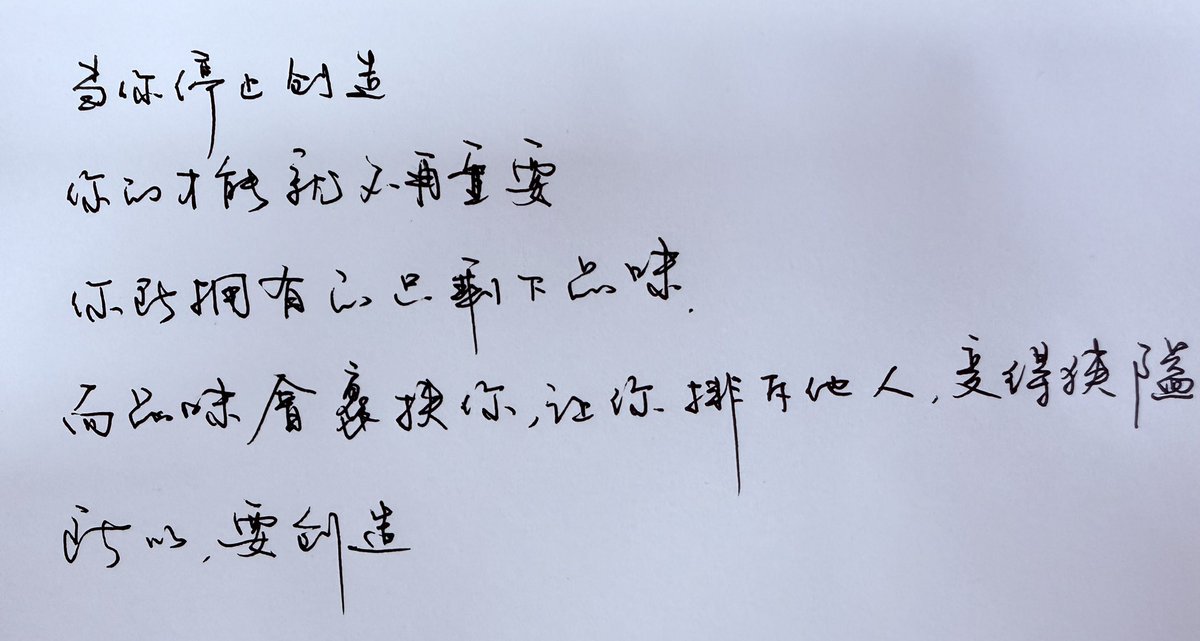 当你停止创造
你的才能就不再重要
你所拥有的只剩下品味.
而品味會裹挟你,让你排斥他人,变得狭隘
所以,要创造